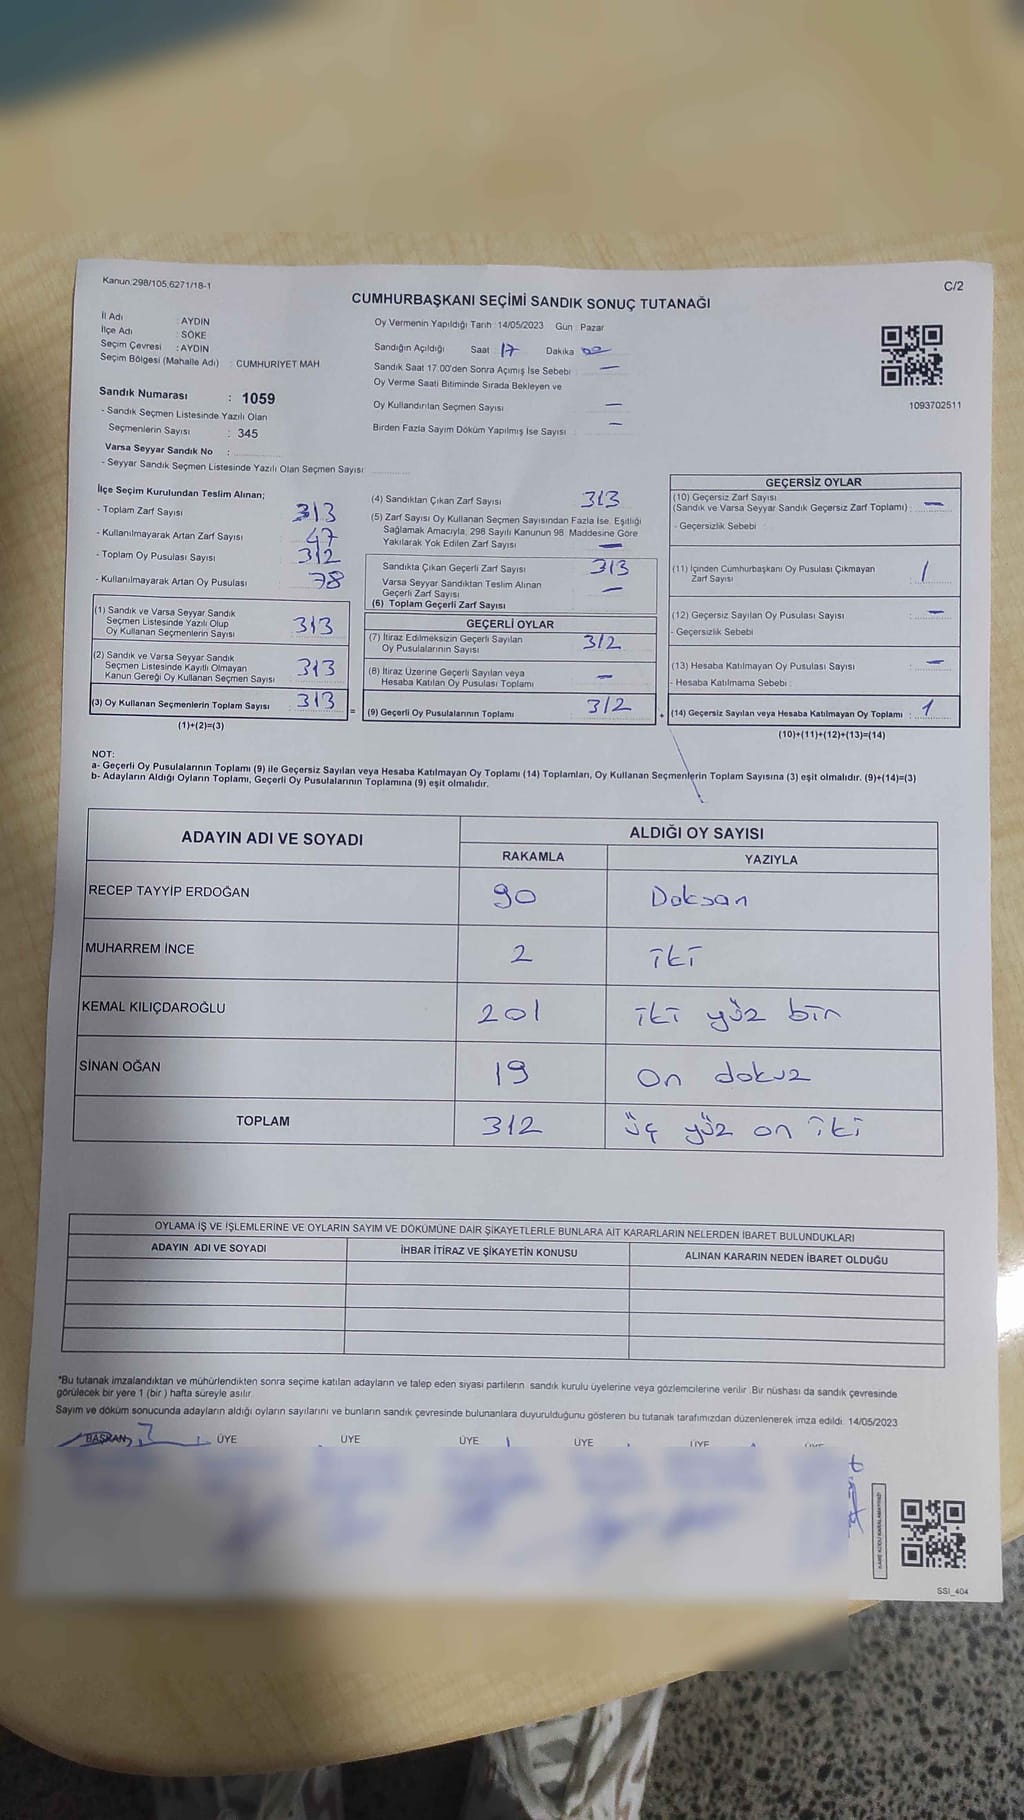 Kanun:298/105,6271/18-1
C/2
CUMHURBAŞKANI SEÇİMİ SANDIK SONUÇ TUTANAĞI
İl Adı : AYDIN
İlçe Adı : SÖKE
Seçim Çevresi : AYDIN
Seçim Bölgesi (Mahalle Adı) : CUMHURİYET MAH
Sandık Numarası : 1059
- Sandık Seçmen Listesinde Yazılı Olan
Seçmenlerin Sayısı : 345
Varsa Seyyar Sandık No :
- Seyyar Sandık Seçmen Listesinde Yazılı Olan Seçmen Sayısı
Oy Vermenin Yapıldığı Tarih :14/05/2023 Gün : Pazar
Sandığın Açıldığı Saat : 17 Dakika : 00
Sandık Saat 17.00'den Sonra Açımış İse Sebebi : —
Oy Verme Saati Bitiminde Sırada Bekleyen ve
Oy Kullandırılan Seçmen Sayısı —
Birden Fazla Sayım Döküm Yapılmış İse Sayısı : —
1093702511
İlçe Seçim Kurulundan Teslim Alınan;
- Toplam Zarf Sayısı 313
- Kullanılmayarak Artan Zarf Sayısı 47
- Toplam Oy Pusulası Sayısı 312
- Kullanılmayarak Artan Oy Pusulası 78
(1) Sandık ve Varsa Seyyar Sandık
Seçmen Listesinde Yazılı Olup
Oy Kullanan Seçmenlerin Sayısı 313
(2) Sandık ve Varsa Seyyar Sandık
Seçmen Listesinde Kayıtlı Olmayan
Kanun Gereği Oy Kullanan Seçmen Sayısı 313
(3) Oy Kullanan Seçmenlerin Toplam Sayısı 313 =
(1)+(2)=(3)
(4) Sandıktan Çıkan Zarf Sayısı 313
(5) Zarf Sayısı Oy Kullanan Seçmen Sayısından Fazla İse, Eşitliği
Sağlamak Amacıyla, 298 Sayılı Kanunun 98. Maddesine Göre
Yakılarak Yok Edilen Zarf Sayısı —
Sandıkla Çıkan Geçerli Zarf Sayısı 313
Varsa Seyyar Sandıktan Teslim Alınan
Geçerli Zarf Sayısı —
(6) Toplam Geçerli Zarf Sayısı
GEÇERLİ OYLAR
(7) İtiraz Edilmeksizin Geçerli Sayılan
Oy Pusulalarının Sayısı 312
(8) İtiraz Üzerine Geçerli Sayılan veya
Hesaba Katılan Oy Pusulası Toplamı —
(9) Geçerli Oy Pusulalarının Toplamı 312 +
GEÇERSİZ OYLAR
(10) Geçersiz Zarf Sayısı
(Sandık ve Varsa Seyyar Sandık Geçersiz Zarf Toplamı) : —
- Geçersizlik Sebebi
(11) İçinden Cumhurbaşkanı Oy Pusulası Çıkmayan
Zarf Sayısı 1
(12) Geçersiz Sayılan Oy Pusulası Sayısı : —
- Geçersizlik Sebebi
(13) Hesaba Katılmayan Oy Pusulası Sayısı : —
- Hesaba Katılmama Sebebi :
(14) Geçersiz Sayılan veya Hesaba Katılmayan Oy Toplamı : 1
(10)+(11)+(12)+(13)=(14)
NOT:
a- Geçerli Oy Pusulalarının Toplamı (9) ile Geçersiz Sayılan veya Hesaba Katılmayan Oy Toplamı (14) Toplamları, Oy Kullanan Seçmenlerin Toplam Sayısına (3) eşit olmalıdır. (9)+(14)=(3)
b- Adayların Aldığı Oyların Toplamı, Geçerli Oy Pusulalarının Toplamına (9) eşit olmalıdır.
ADAYIN ADI VE SOYADI ALDIĞI OY SAYISI
RAKAMLA YAZIYLA
RECEP TAYYİP ERDOĞAN 90 Doksan
MUHARREM İNCE 2 iki
KEMAL KILIÇDAROĞLU 201 iki yüz bir
SİNAN OĞAN 19 On dokuz
TOPLAM 312 üç yüz on iki
OYLAMA İŞ VE İŞLEMLERİNE VE OYLARIN SAYIM VE DÖKÜMÜNE DAİR ŞİKAYETLERLE BUNLARA AİT KARARLARIN NELERDEN İBARET BULUNDUKLARI
ADAYIN ADI VE SOYADI İHBAR İTİRAZ VE ŞİKAYETİN KONUSU ALINAN KARARIN NEDEN İBARET OLDUĞU
*Bu tutanak imzalandıktan ve mühürlendikten sonra seçime katılan adayların ve talep eden siyasi partilerin sandık kurulu üyelerine veya gözlemcilerine verilir. Bir nüshası da sandık çevresinde
görülecek bir yere 1 (bir ) hafta süreyle asılır.
Sayım ve döküm sonucunda adayların aldığı oyların sayılarını ve bunların sandık çevresinde bulunanlara duyurulduğunu gösteren bu tutanak tarafımızdan düzenlenerek imza edildi. 14/05/2023
BAŞKAN ÜYE ÜYE ÜYE ÜYE ÜYE
SSİ_404